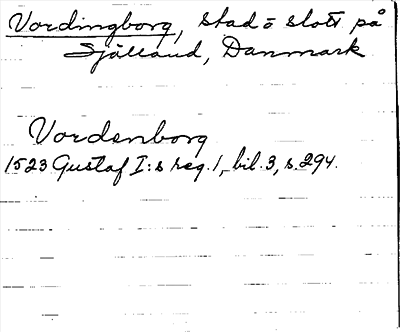 Vordingborg, stad o slott på
Själland, Danmark
Vordenborg
1523 Gustaf I:s reg. 1, bil. 3, s. 294.